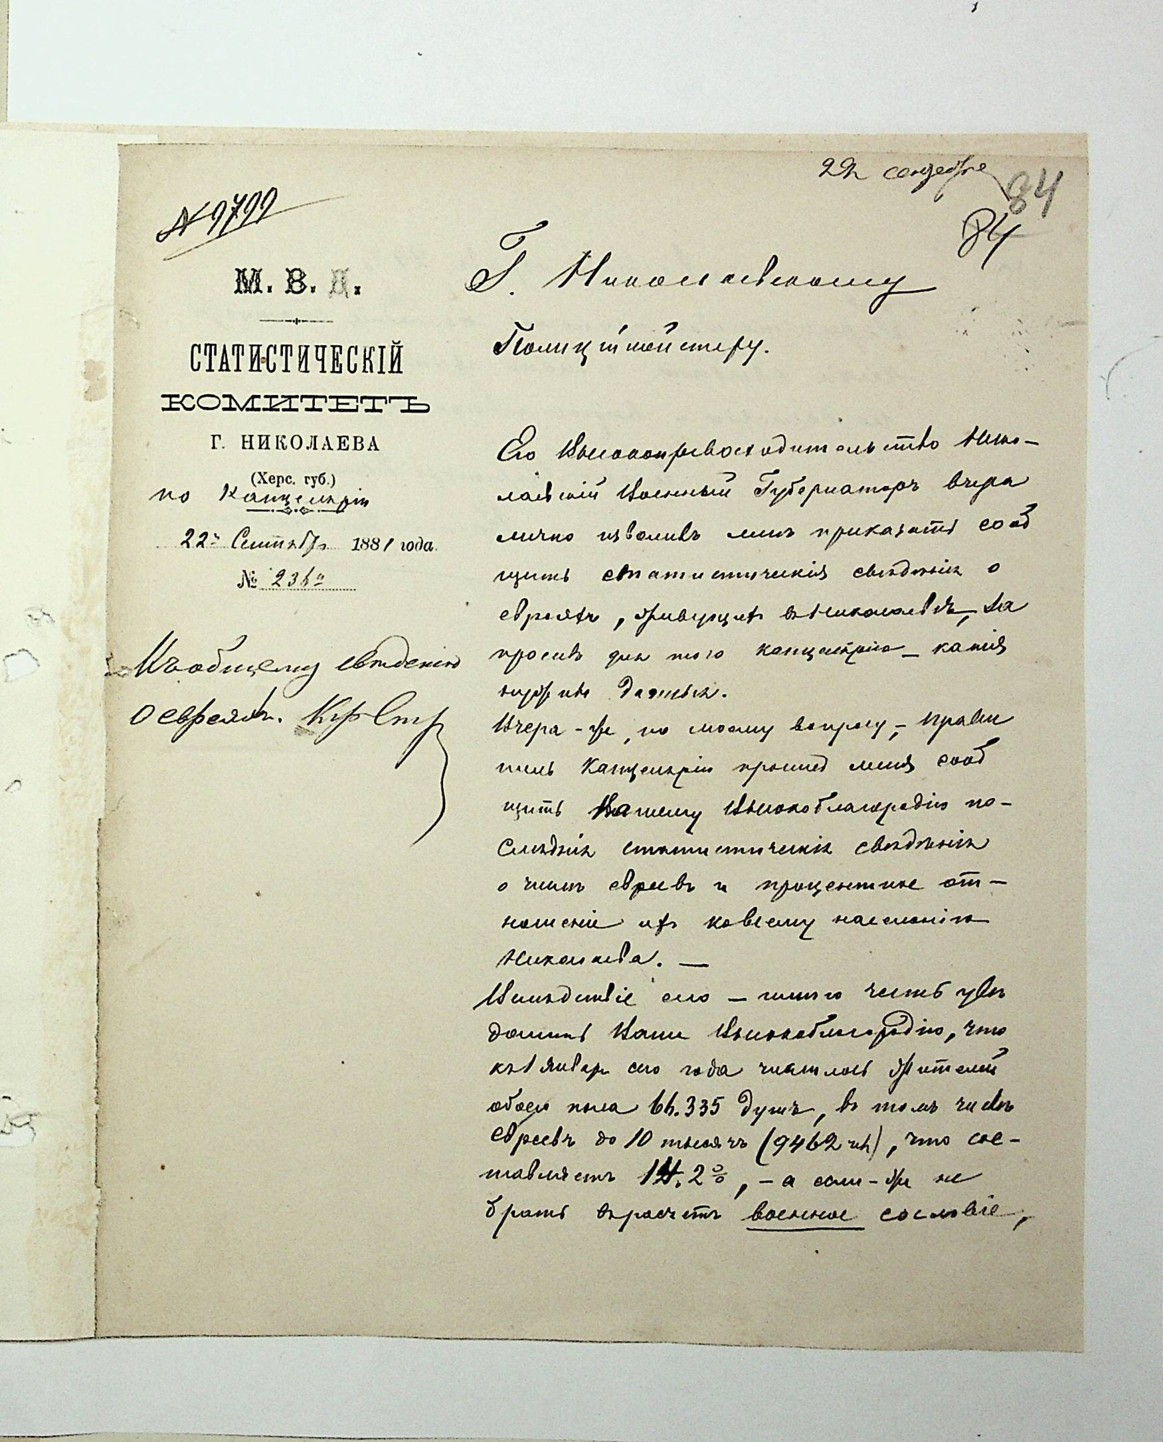 22 сентября
84
84
№ 9799
М. В. Д.
СТАТИСТИЧЕСКІЙ
КОМИТЕТЪ
Г. НИКОЛАЕВА
(Херс. губ.)
по Канцеляріи
22го Сентября 1881 года.
№ 236
Къ общему свѣденію
о евреяхъ.
Г. Николаевскому
Полиціймейстеру.
Его Высокопревосходительство Нико-
лаевскій Военный Губернаторъ вчера
лично изволивъ мнѣ приказать сооб
щить статистическія свѣдѣнія о
евреяхъ, живущихъ въ Николаевѣ, за
просивъ для того канцелярію – какія
нужны данныя.
Вчера-же, по моему вопросу, – прави
тель Канцеляріи просилъ меня сооб
щить Вашему Высокоблагородію по-
слѣднія статистическія свѣдѣнія
о числѣ евреевъ и процентное от-
ношеніе ихъ ко всему населенію
Николаева. —
Вслѣдствіе сего – имѣю честь увѣ
домить Ваше Высокоблагородіе, что
къ 1 Январю сего года числилось жителей
обоего пола 66.335 душъ, въ томъ числѣ
евреевъ до 10 тысячъ (9462 ч.), что сос-
тавляетъ 14.2%, – а если-же не
брать въ расчетъ военное сословіе,